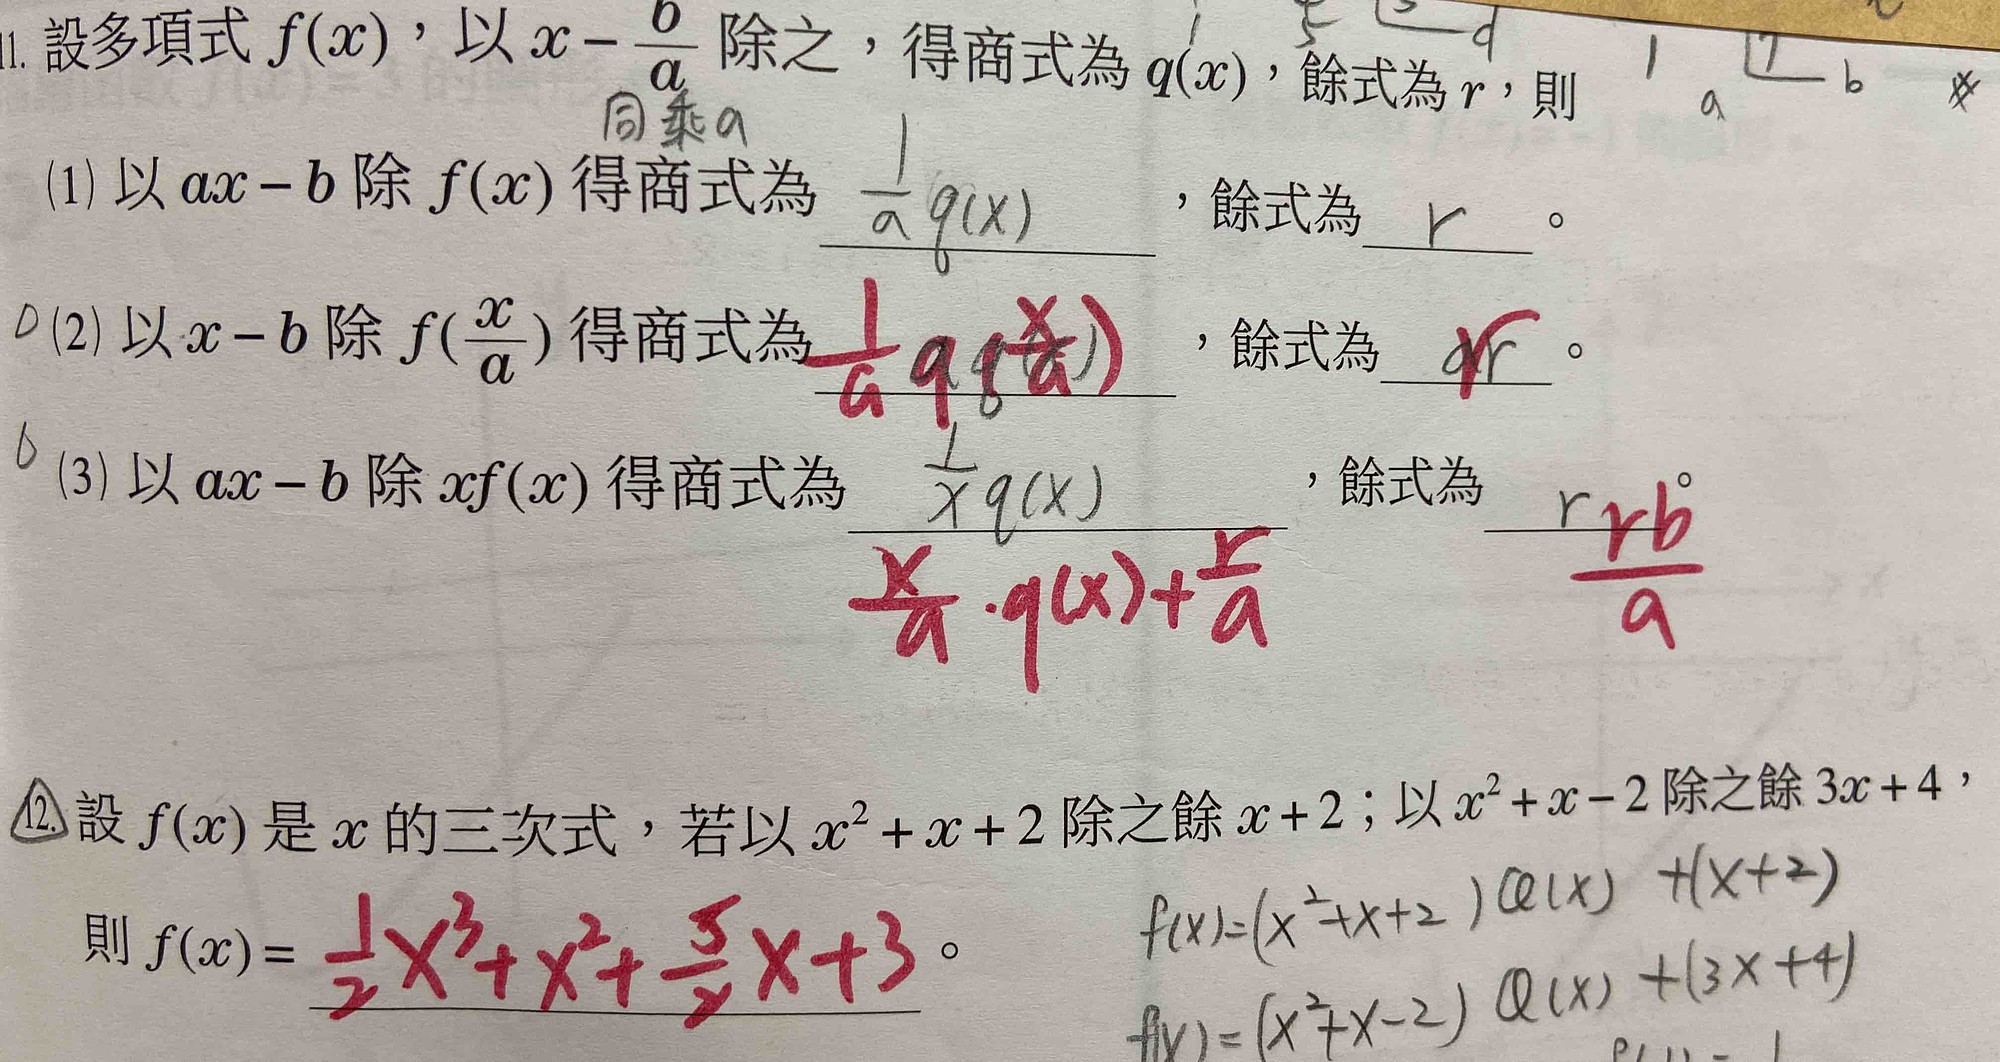 11. 設多項式 f(x)，以 x − b/a 除之，得商式為 q(x)，餘式為 r，則
同乘a
(1) 以 ax − b 除 f(x) 得商式為 1/a q(x)，餘式為 r。
(2) 以 x − b 除 f(x/a) 得商式為 1/a q(x/a)，餘式為 r。
(3) 以 ax − b 除 xf(x) 得商式為 1/x q(x)，餘式為 r。
x/a · q(x) + r/a
rb/a
12. 設 f(x) 是 x 的三次式，若以 x² + x + 2 除之餘 x + 2；以 x² + x − 2 除之餘 3x + 4，
則 f(x) = 1/2 x³ + x² + 5/2 x + 3。
f(x) = (x² + x + 2) Q(x) + (x + 2)
f(x) = (x² + x − 2) Q(x) + (3x + 4)